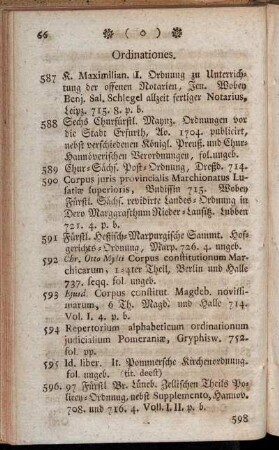 66 ( o )
Ordinationes.
587 K. Maximilian. I. Ordnung zu Unterrich-
tung der offenen Notarien, Jen. Wobey
Benj. Sal. Schlegel allzeit fertiger Notarius,
Leipz. 715. 8. p. b.
588 Sechs Churfürstl. Maynz. Ordnungen vor
die Stadt Erfurth, Ao. 1704. publicirt,
nebst verschiedenen Königl. Preuß. und Chur-
Hannöverischen Verordnungen, fol. ungeb.
589 Chur-Sächs. Post-Ordnung, Dreßd. 714.
590 Corpus juris provincialis Marchionatus Lu-
satiæ superioris, Budissin 715. Wobey
Fürstl. Sächs. revidirte Landes-Ordnung in
Dero Marggrafthum Nieder-Lausitz. Lubben
721. 4. p. b.
591 Fürstl. Hessisch-Marpurgische Sammt. Hofs-
gerichts-Ordnung, Marp. 726. 4. ungeb.
592 Chr. Otto Mylii Corpus constitutionum Mar-
chicarum, Theil, Berlin und Halle
737. seqq. fol. ungeb.
593 Ejusd. Corpus constitut. Magdeb. novissi-
morum, 6 Th. Magd. und Halle 714.
Vol. I. 4. p. b.
594 Repertorium alphabeticum ordinationum
judicialium Pomeraniæ, Gryphisw. 752.
fol. pp.
595 Id. liber. It. Pommersche Kirchenordnung.
fol. ungeb. (tit. deest)
596. 97 Fürstl Br. Lüneb. Zellischen Theils Po-
licey-Ordnung, nebst Supplemento, Hannov.
708. und 716. 4. Voll. I. II. p. b.
598